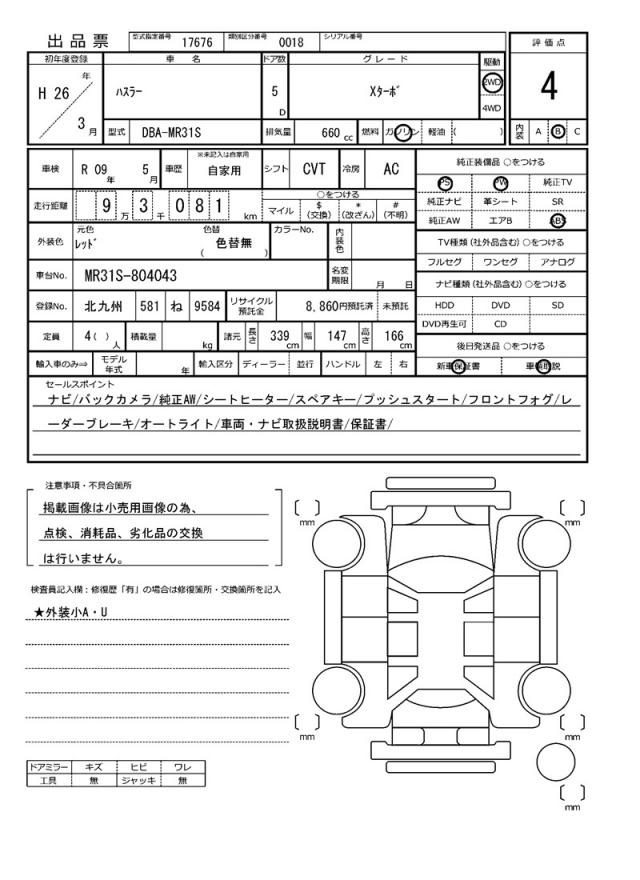 出品票 型式指定番号 17676 類別区分番号 0018 シリアル番号
評価点
4
内装 A B C
初年度登録 車名 ドア数 グレード 駆動
H 26 年 3 月 ハスラー 5 D Xターボ 2WD 4WD
型式 DBA-MR31S 排気量 660 cc 燃料 ガソリン 軽油 ( )
車検 R 09 年 5 月 車歴 ※未記入は自家用 自家用 シフト CVT 冷房 AC
走行距離 9 万 3 千 0 8 1 km ○をつける
マイル $ (交換) * (改ざん) # (不明)
外装色 元色 レッド 色替 色替無 ( ) カラーNo. 内装色
車台No. MR31S-804043 名変期限 月 日
登録No. 北九州 581 ね 9584 リサイクル預託金 8,860円預託済 未預託
定員 4( ) 人 積載量 kg 諸元 長さ 339 cm 幅 147 cm 高さ 166 cm
輸入車のみ⇒ モデル年式 年 輸入区分 ディーラー 並行 ハンドル 左 右
純正装備品 ○をつける
PS PW 純正TV
純正ナビ 革シート SR
純正AW エアB ABS
TV種類 (社外品含む) ○をつける
フルセグ ワンセグ アナログ
ナビ種類 (社外品含む) ○をつける
HDD DVD SD
DVD再生可 CD
後日発送品 ○をつける
新車保証書 車輌取説
セールスポイント
ナビ/バックカメラ/純正AW/シートヒーター/スペアキー/プッシュスタート/フロントフォグ/レ
ーダーブレーキ/オートライト/車両・ナビ取扱説明書/保証書/
注意事項・不具合箇所
掲載画像は小売用画像の為、
点検、消耗品、劣化品の交換
は行いません。
検査員記入欄：修復歴「有」の場合は修復箇所・交換箇所を記入
★外装小A・U
ドアミラー キズ ヒビ ワレ
工具 無 ジャッキ 無
[ ] mm
[ ] mm
[ ] mm
[ ] mm
[ ] mm